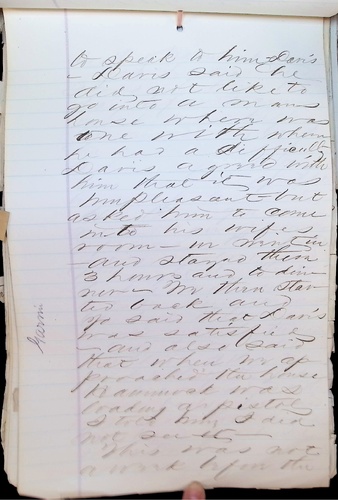 to speak to him Davis
- Davis said he
did not like to
go into a mans
house where was
one with whom
he had a difficulty
Davis agreed with
him that it was
unpleasant but
asked him to come
into his wifes
room - we went in
- and stayed there
3 hours and to din-
ner - We then star-
ted back and
said that Davis
was satisfied
- and also said
that when we ap
proached the house
Hammock was
loading a pistol
I told him I did
not see it -
This was not
a week before the